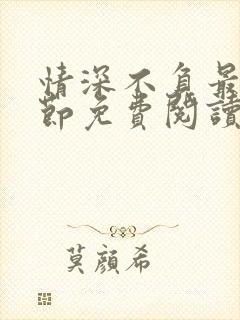 情深不負最
節免費閱讀
莫顏希